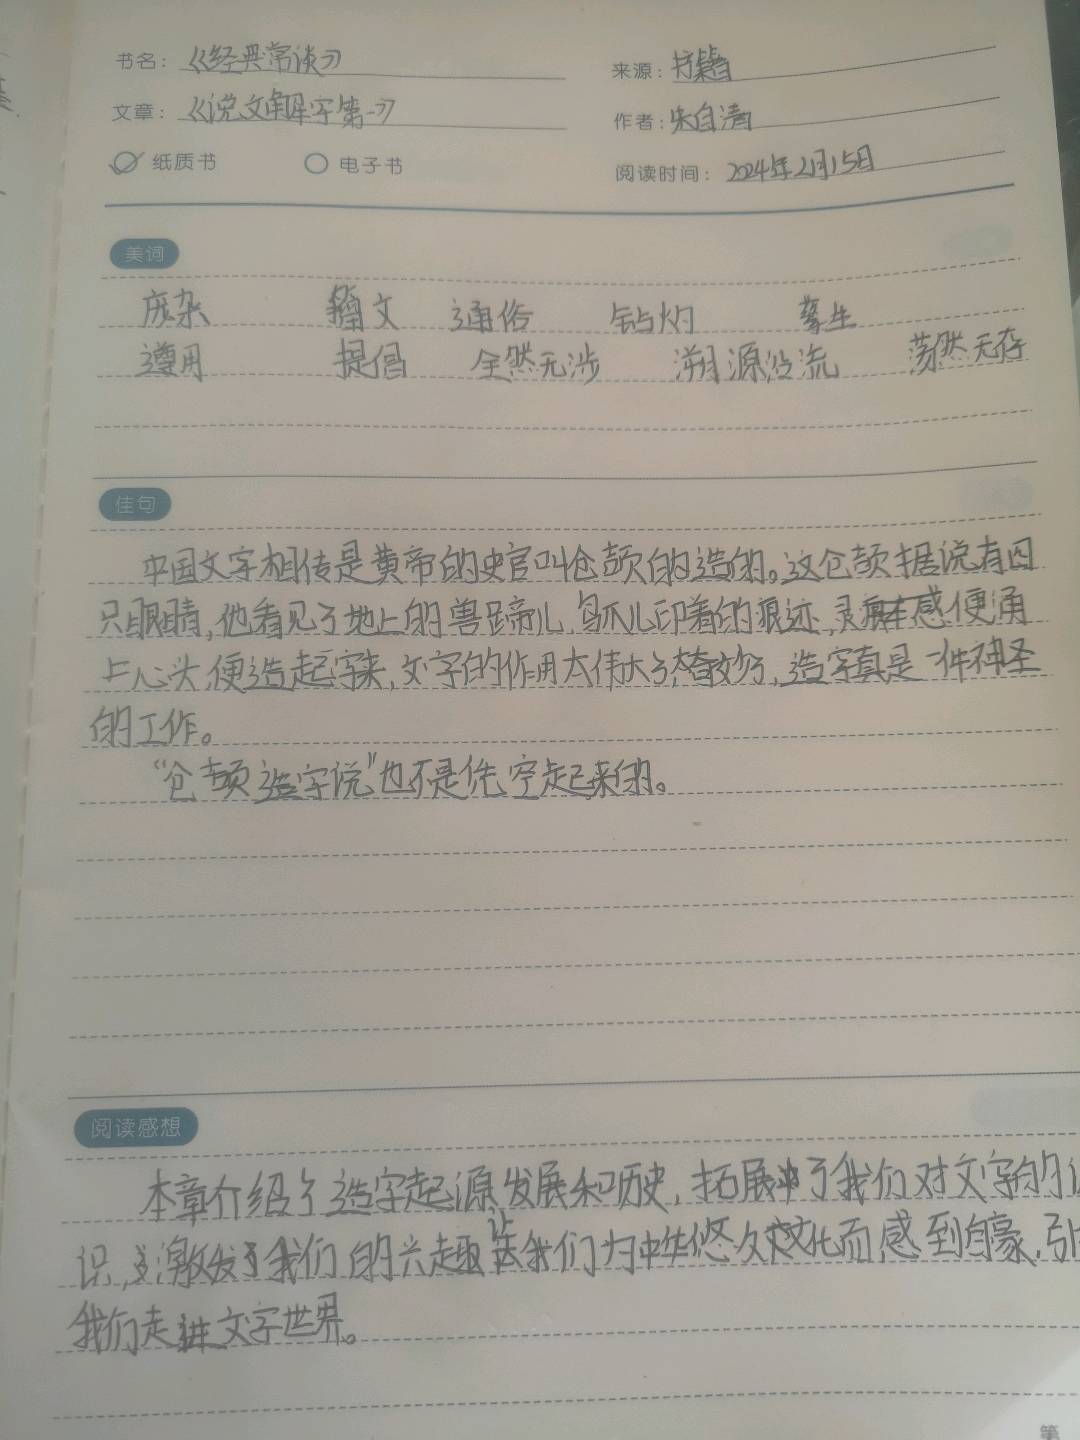 书名：《经典常谈》
来源：
文章：《说文解字第一》
作者：朱自清
纸质书 电子书
阅读时间：2024年2月15日
美词
庞杂 籀文 通俗 钻灼 孳生
遵用 提倡 全然无涉 溯源沿流 荡然无存
佳句
中国文字相传是黄帝的史官叫仓颉的造的。这仓颉据说有四
只眼睛,他看见了地上的兽蹄儿、鸟爪儿印着的痕迹,灵感便涌
上心头,便造起字来,文字的作用太伟大了,太奇妙了,造字真是一件神圣
的工作。
“仓颉造字说”也不是凭空起来的。
阅读感想
本章介绍了造字起源、发展和历史,拓展了我们对文字的
识,激发了我们的兴趣,让我们为中华悠久文化而感到自豪,引
我们走进文字世界。
第